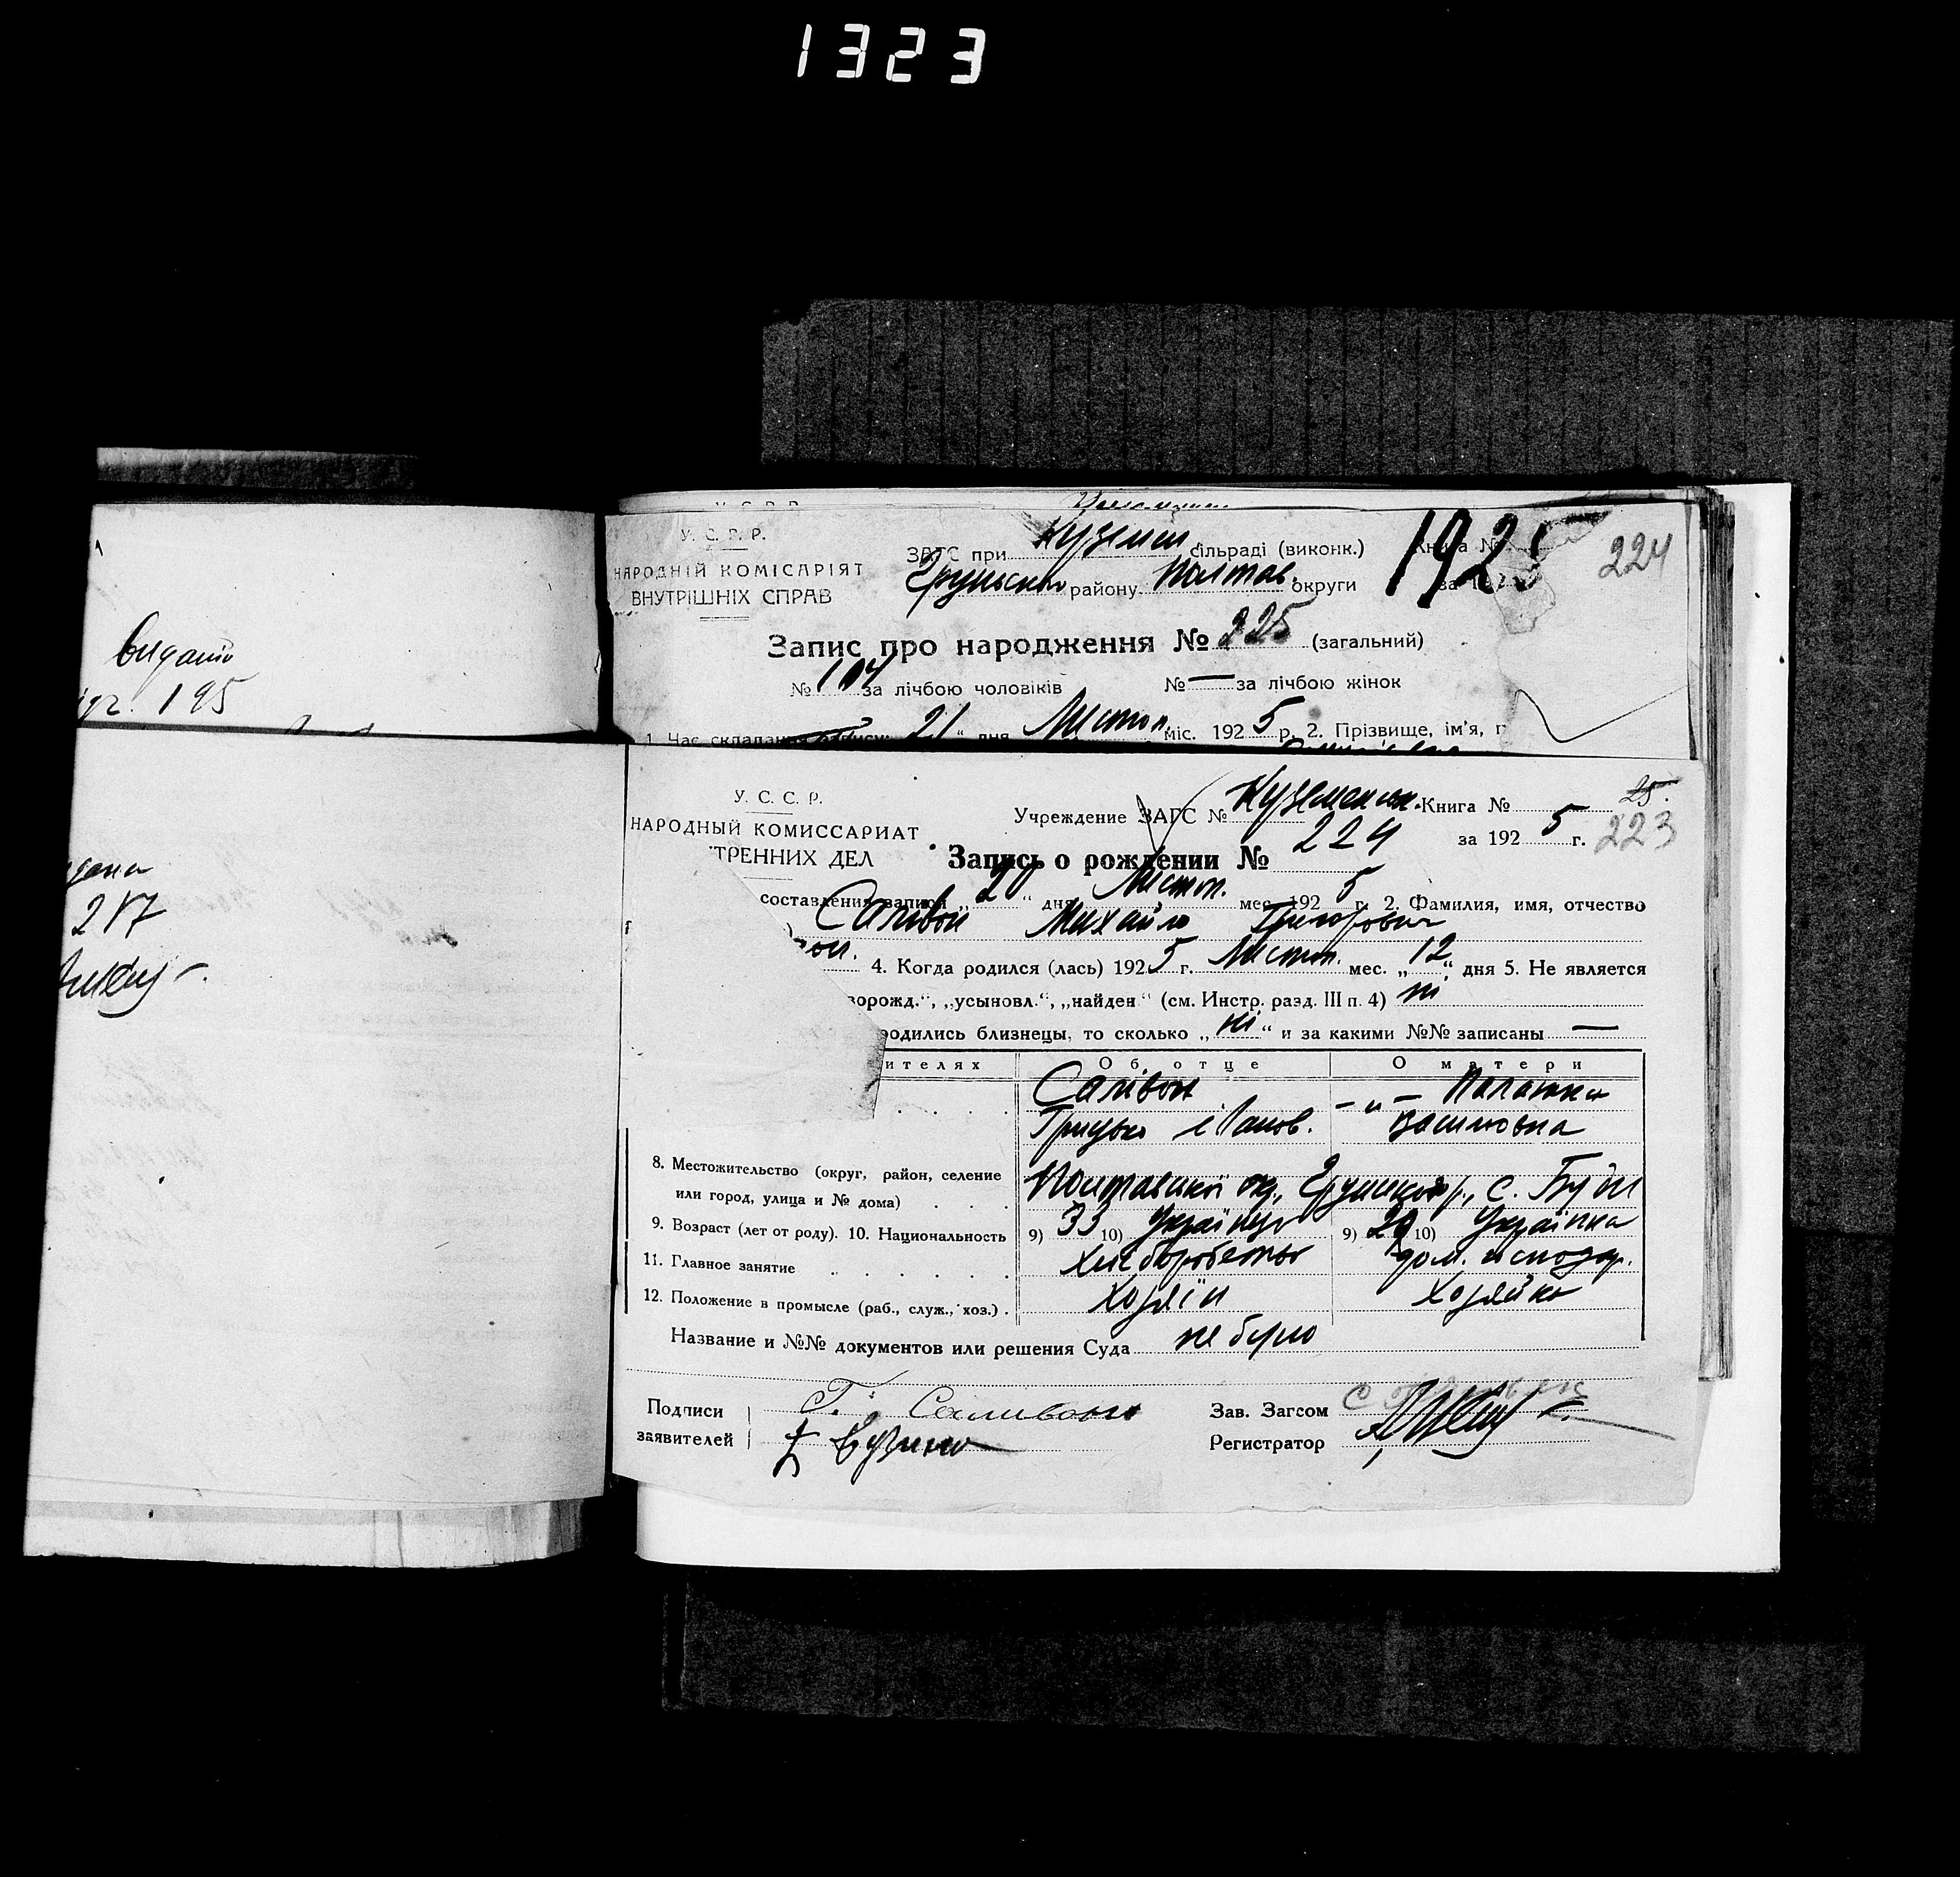 1323
видано
195
У. С. Р. Р.
НАРОДНІЙ КОМІСАРІЯТ
ВНУТРІШНІХ СПРАВ
ЗАГС при Куземин сільраді (виконк.) Книга №
224
Грунськ району Полтав. округи
1925
Запис про народження № 225 (загальний)
№ 104 за лічбою чоловіків № — за лічбою жінок
1. Час складання запису: 21 " дня Листоп. міс. 1925 р. 2. Прізвище, ім'я, п
217
У. С. С. Р.
НАРОДНЫЙ КОМИССАРИАТ
ТРЕННИХ ДЕЛ
Учреждение ЗАГС № Куземенськ. Книга № 25.
за 1925 г. 223
Запись о рождении № 224
составления записи „20“ дня Листоп. мес. 1925 г. 2. Фамилия, имя, отчество
Салівон Михайло Григорович
4. Когда родился (лась) 1925 г. Листоп. мес. „12“ дня 5. Не является
ворожд.“, „усыновл.“, „найден“ (см. Инстр. разд. III п. 4) ні
родились близнецы, то сколько „ні“ и за какими №№ записаны —
ителях Об отце О матери
Салівон –"– Палажка
Грицько Василовна
8. Местожительство (округ, район, селение
или город, улица и № дома)
Полтавської окр., Грунськ. р., с. Буди
9. Возраст (лет от роду). 10. Национальность 9) 33 10) Українець 9) 29 10) Українка
11. Главное занятие Хлеборобство дом. господар.
12. Положение в промысле (раб., служ., хоз.) . Хозяїн Хозяйка
Название и №№ документов или решения Суда не було
Подписи
заявителей
Г. Саливон
Бузина
Зав. Загсом
Регистратор